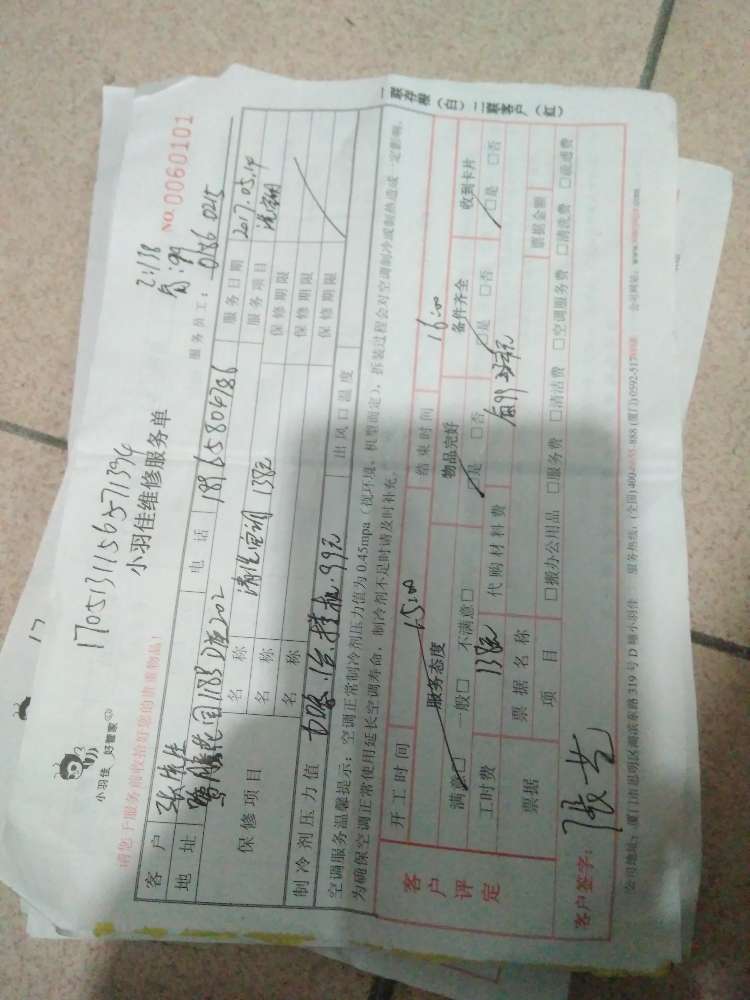 1705131156571394
21138
小羽佳 好管家
小羽佳维修服务单
NO.0060101
请您于服务前收拾好您的贵重物品!
服务员工: 0186 0215
客户 张先生 电话 18965804786 服务日期 2017.05.14
地址
保修项目 名称 清洗空调 138元 服务项目
名称 保修期限
名称 保修期限
保修期限
制冷剂压力值 出风口温度
空调服务温馨提示:空调正常制冷剂压力值为0.45mpa(视环境、机型而定),拆装过程会对空调制冷或制热造成一定影响,
为确保空调正常使用延长空调寿命,制冷剂不足时请及时补充。
客户评定
开工时间 15:00 结束时间 16:00
服务态度 物品完好 备件齐全 收到卡片
满意□ 一般□ 不满意□ □是 □否 □是 □否 □是 □否
工时费 138元 代购材料费
票据 票据名称 票据金额
项目 □搬办公用品 □服务费 □清洁费 □空调服务费 □清洗费 □疏通费
客户签字:
公司地址:厦门市思明区湖滨东路319号D幢小羽佳 服务热线:(全国)400 888 (厦门)0592-517 公司网址:www.
一联存根(白) 二联客户(红)